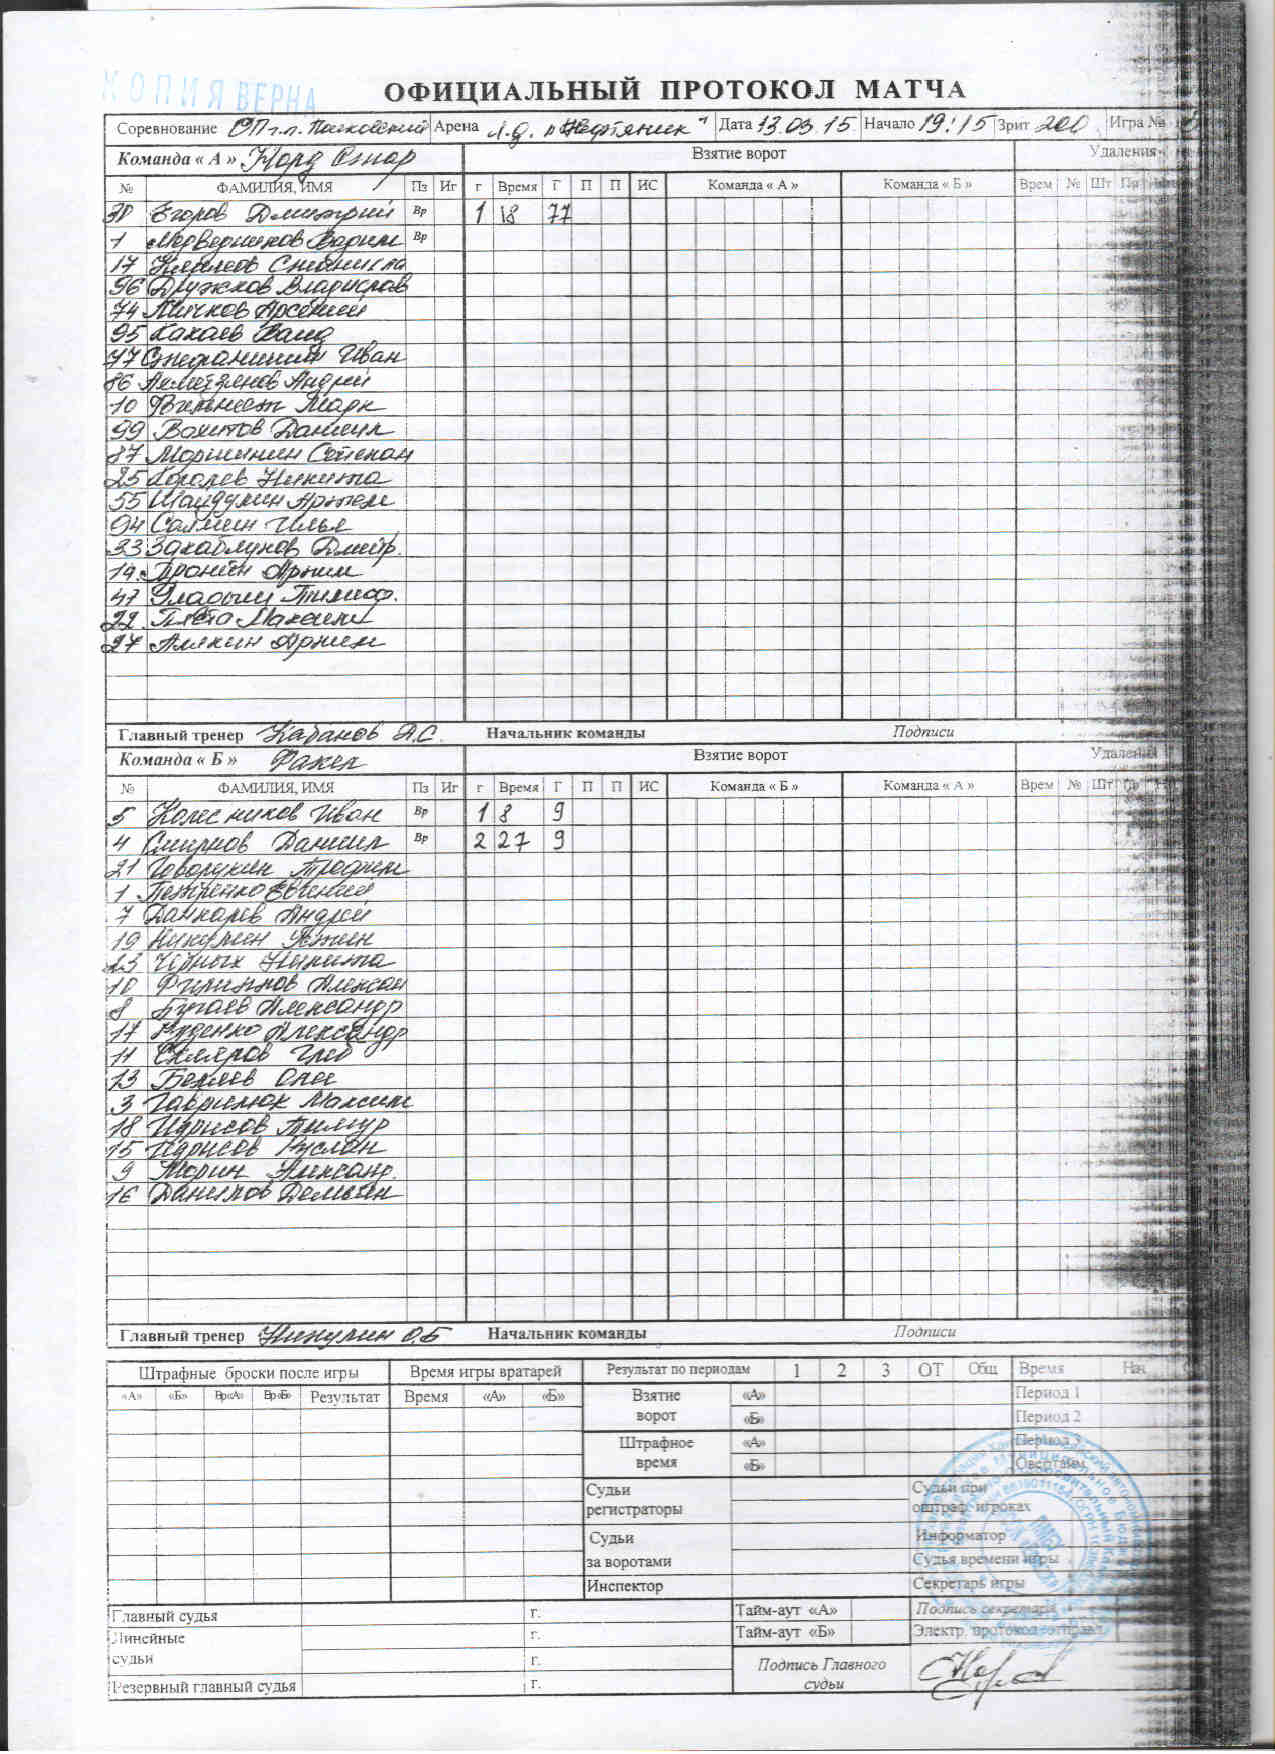 КОПИЯ ВЕРНА
ОФИЦИАЛЬНЫЙ ПРОТОКОЛ МАТЧА
Соревнование ОП г.п. Пойковский Арена Л.Д. "Нефтяник" Дата 13.03.15 Начало 19:15 Зрит 200 Игра №
Команда « А » Норд Стар Взятие ворот Удаления
№ ФАМИЛИЯ, ИМЯ Пз Иг г Время Г П П ИС Команда « А » Команда « Б » Врем № Шт Пр
30 Егоров Дмитрий Вр 1 18 77
1 Медверников Вадим Вр
17
96 Дружков Владислав
74 Мичков Арсений
95 Какаев Ваид
77 Иван
86 Ахметзянов Андрей
10 Марк
99 Вахитов Даниил
87 Моршинин Степан
25 Королев Никита
55 Шайдулин Артем
94 Салмин Илья
33 Закаблунов Дмитр.
19 Пронин Артим
47 Гладыш Тимоф.
22 Максим
27 Алякин Артем
Главный тренер Кабанов А.С. Начальник команды Подписи
Команда « Б » Факел Взятие ворот Удален
№ ФАМИЛИЯ, ИМЯ Пз Иг г Время Г П П ИС Команда « Б » Команда « А » Врем № Шт
5 Колесников Иван Вр 1 8 9
4 Смирнов Даниил Вр 2 27 9
21 Говорухин Трофим
1 Петренко Евгений
7 Андрей
19 Никулин Устин
23 Чёрных Никита
10 Филиппов Алексан
8 Бугаев Александр
17 Руденко Александр
11 Скляров Глеб
13 Беляев Олег
3 Гаврилюк Максим
18 Идрисов Тимур
15 Идрисов Руслан
9 Морин Александ.
16 Данилов Дементи
Главный тренер Никулин О.Б Начальник команды Подписи
Штрафные броски после игры Время игры вратарей Результат по периодам 1 2 3 ОТ Общ Время Нач
«А» «Б» Вр«А» Вр«Б» Результат Время «А» «Б» Взятие ворот «А» Период 1
«Б» Период 2
Штрафное время «А» Период 3
«Б» Овертайм
Судьи регистраторы Судьи при оштраф. игроках
Судьи за воротами Информатор
Судья времени игры
Инспектор Секретарь игры
Главный судья г. Тайм-аут «А» Подпись секретаря
Линейные судьи г. Тайм-аут «Б» Электр. протокол отправл.
г. Подпись Главного судьи
Резервный главный судья г.